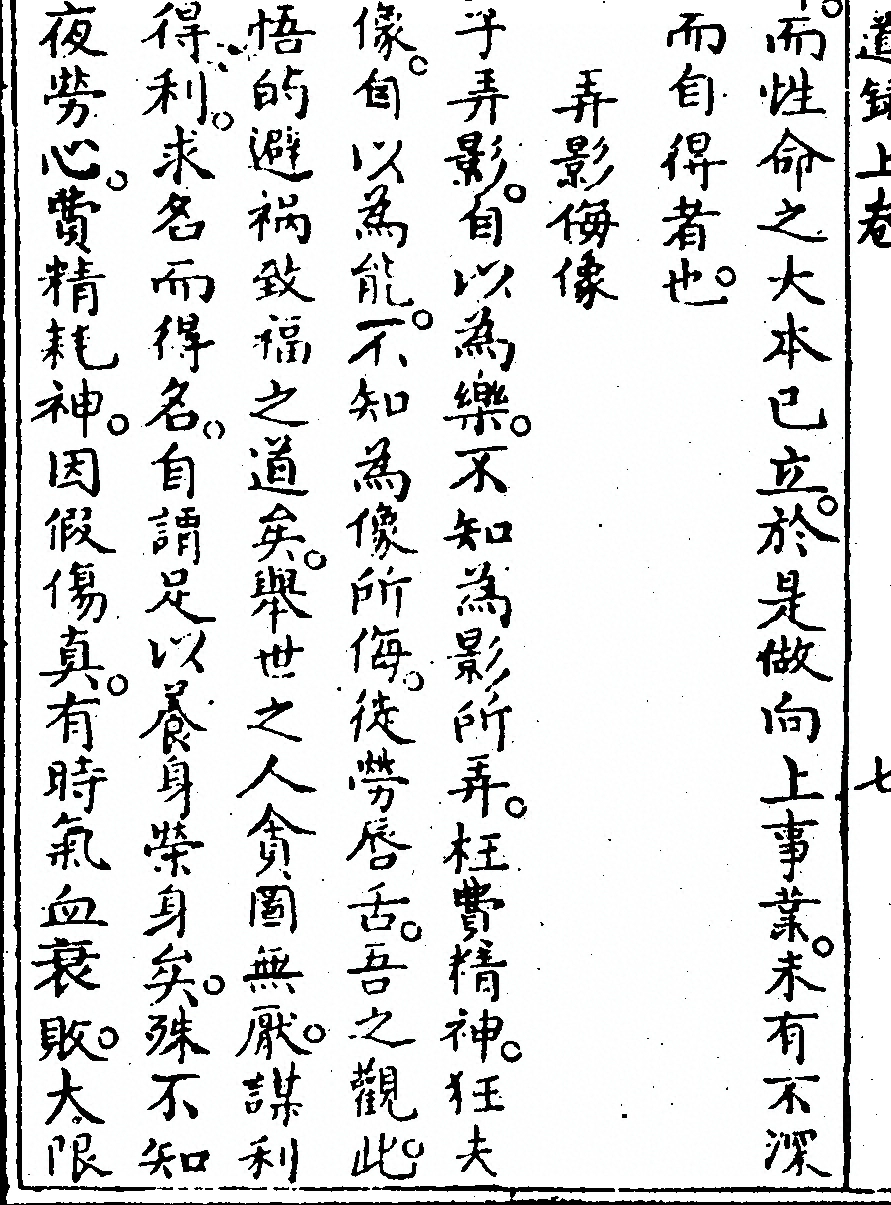 道錄上卷 七
而性命之大本已立於是做向上事業未有不深
而自得者也
弄影侮像
子弄影自以為樂不知為影所弄枉費精神狂夫
像自以為能不知為像所侮徒勞唇舌吾之觀此
悟的避禍致福之道矣舉世之人貪圖無厭謀利
得利求名而得名自謂足以養身榮身矣殊不知
夜勞心費精耗神因假傷真有時氣血衰敗大限